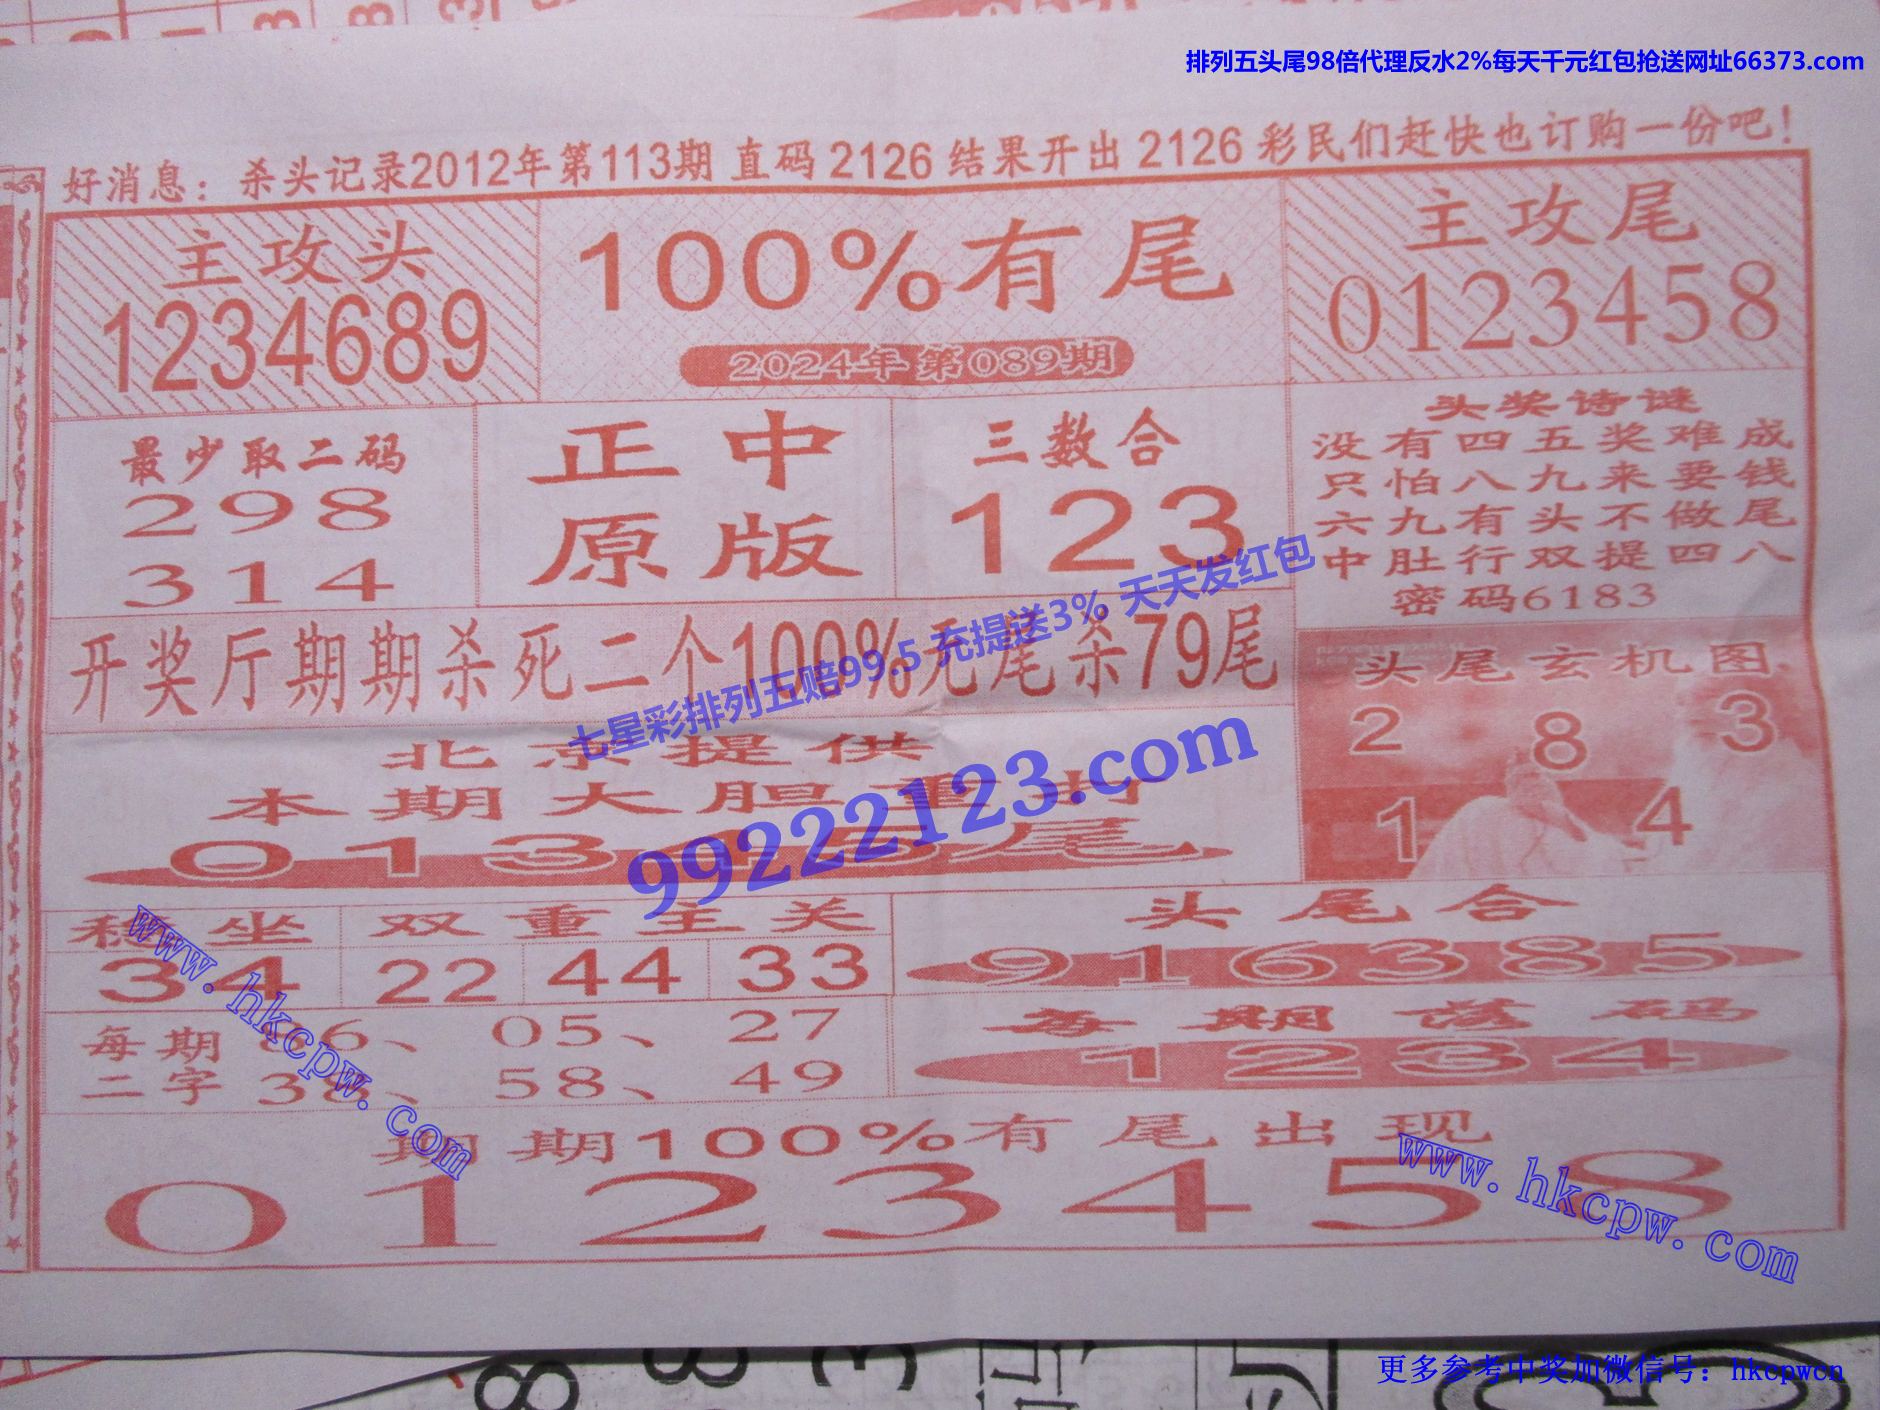 排列五头尾98倍代理反水2%每天千元红包抢送网址66373.com
好消息：杀头记录2012年第113期 直码 2126 结果开出 2126 彩民们赶快也订购一份吧！
主攻头
1234689
100%有尾
2024年第089期
主攻尾
0123458
最少取二码
298
314
正中
原版
三数合
123
头奖诗谜
没有四五奖难成
只怕八九来要钱
六九有头不做尾
中肚行双提四八
密码6183
开奖厅期期杀死二个100%无尾杀79尾
七星彩排列五赔99.5 充提送3% 天天发红包
99222123.com
头尾玄机图
2 8 3
1 4
北京提供
本期大胆重
013 尾
稳坐
34
双重主关
22 44 33
头尾合
916385
每期
二字
6、 05、 27
38、 58、 49
每期落码
1234
期期100%有尾出现
0123458
www.hkcpw.com
www.hkcpw.com
更多参考中奖加微信号：hkcpwcn